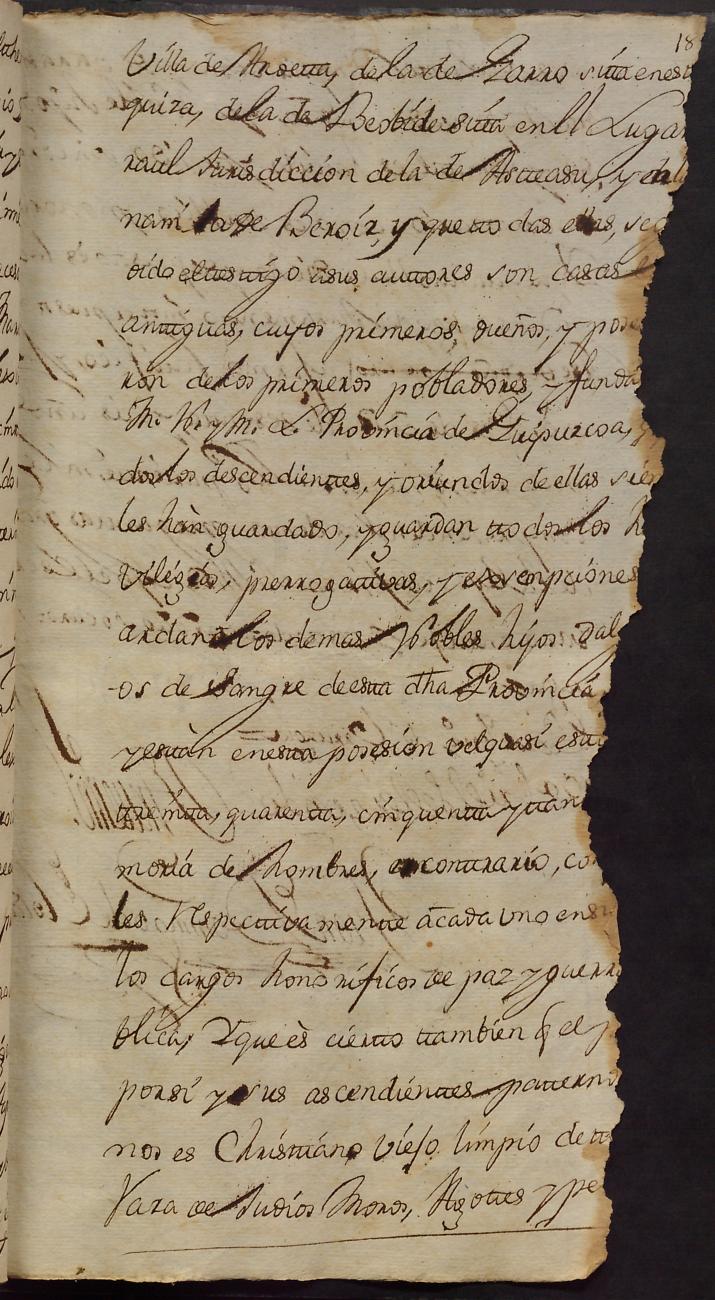 18
Villa de Andetta, de la de Garro sitta en est
quiza, de la de Beobide sitta en el Lugar
raul Jurisdiccion de la de Astteasu, y de la
nam la de Beroiz, y que tto das ellas, seg
oido el testtigo à sus auttores son casas
anttiguas, cuyos primeros, dueños, y pose
ron de los primeros pobladores, y funda
M. N. y M. L. Provincia de Guipuzcoa, y
dos los descendienttes, y oriundos de ellas siem
les hàn guardado, y guardan tto dos los h
vilegios, prerrogattivas, y esempciones
ardan à los demas Nobles hijos dalg
os de Sangre de esta dha Provincia
y esttàn en estta posesion vel quasi estt
ttreintta, quarentta, cinquentta y ttan
moria de hombres, en conttrario, con
les respecttivamentte à cada uno en su
los cargos honorificos de paz y guerra
blica, Y que ès cierto ttambien q el p
por si y sus ascendienttes patterno
nos es Christtiano viejo limpio de tt
Raza de Judios Moros, Agottes y pe